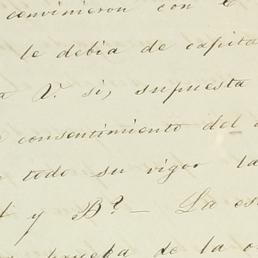 convinieron con
le debia de capita
V. si, supuesta
consentimiento del
todo su vigor la
y B.ª — La es
prueba de la o